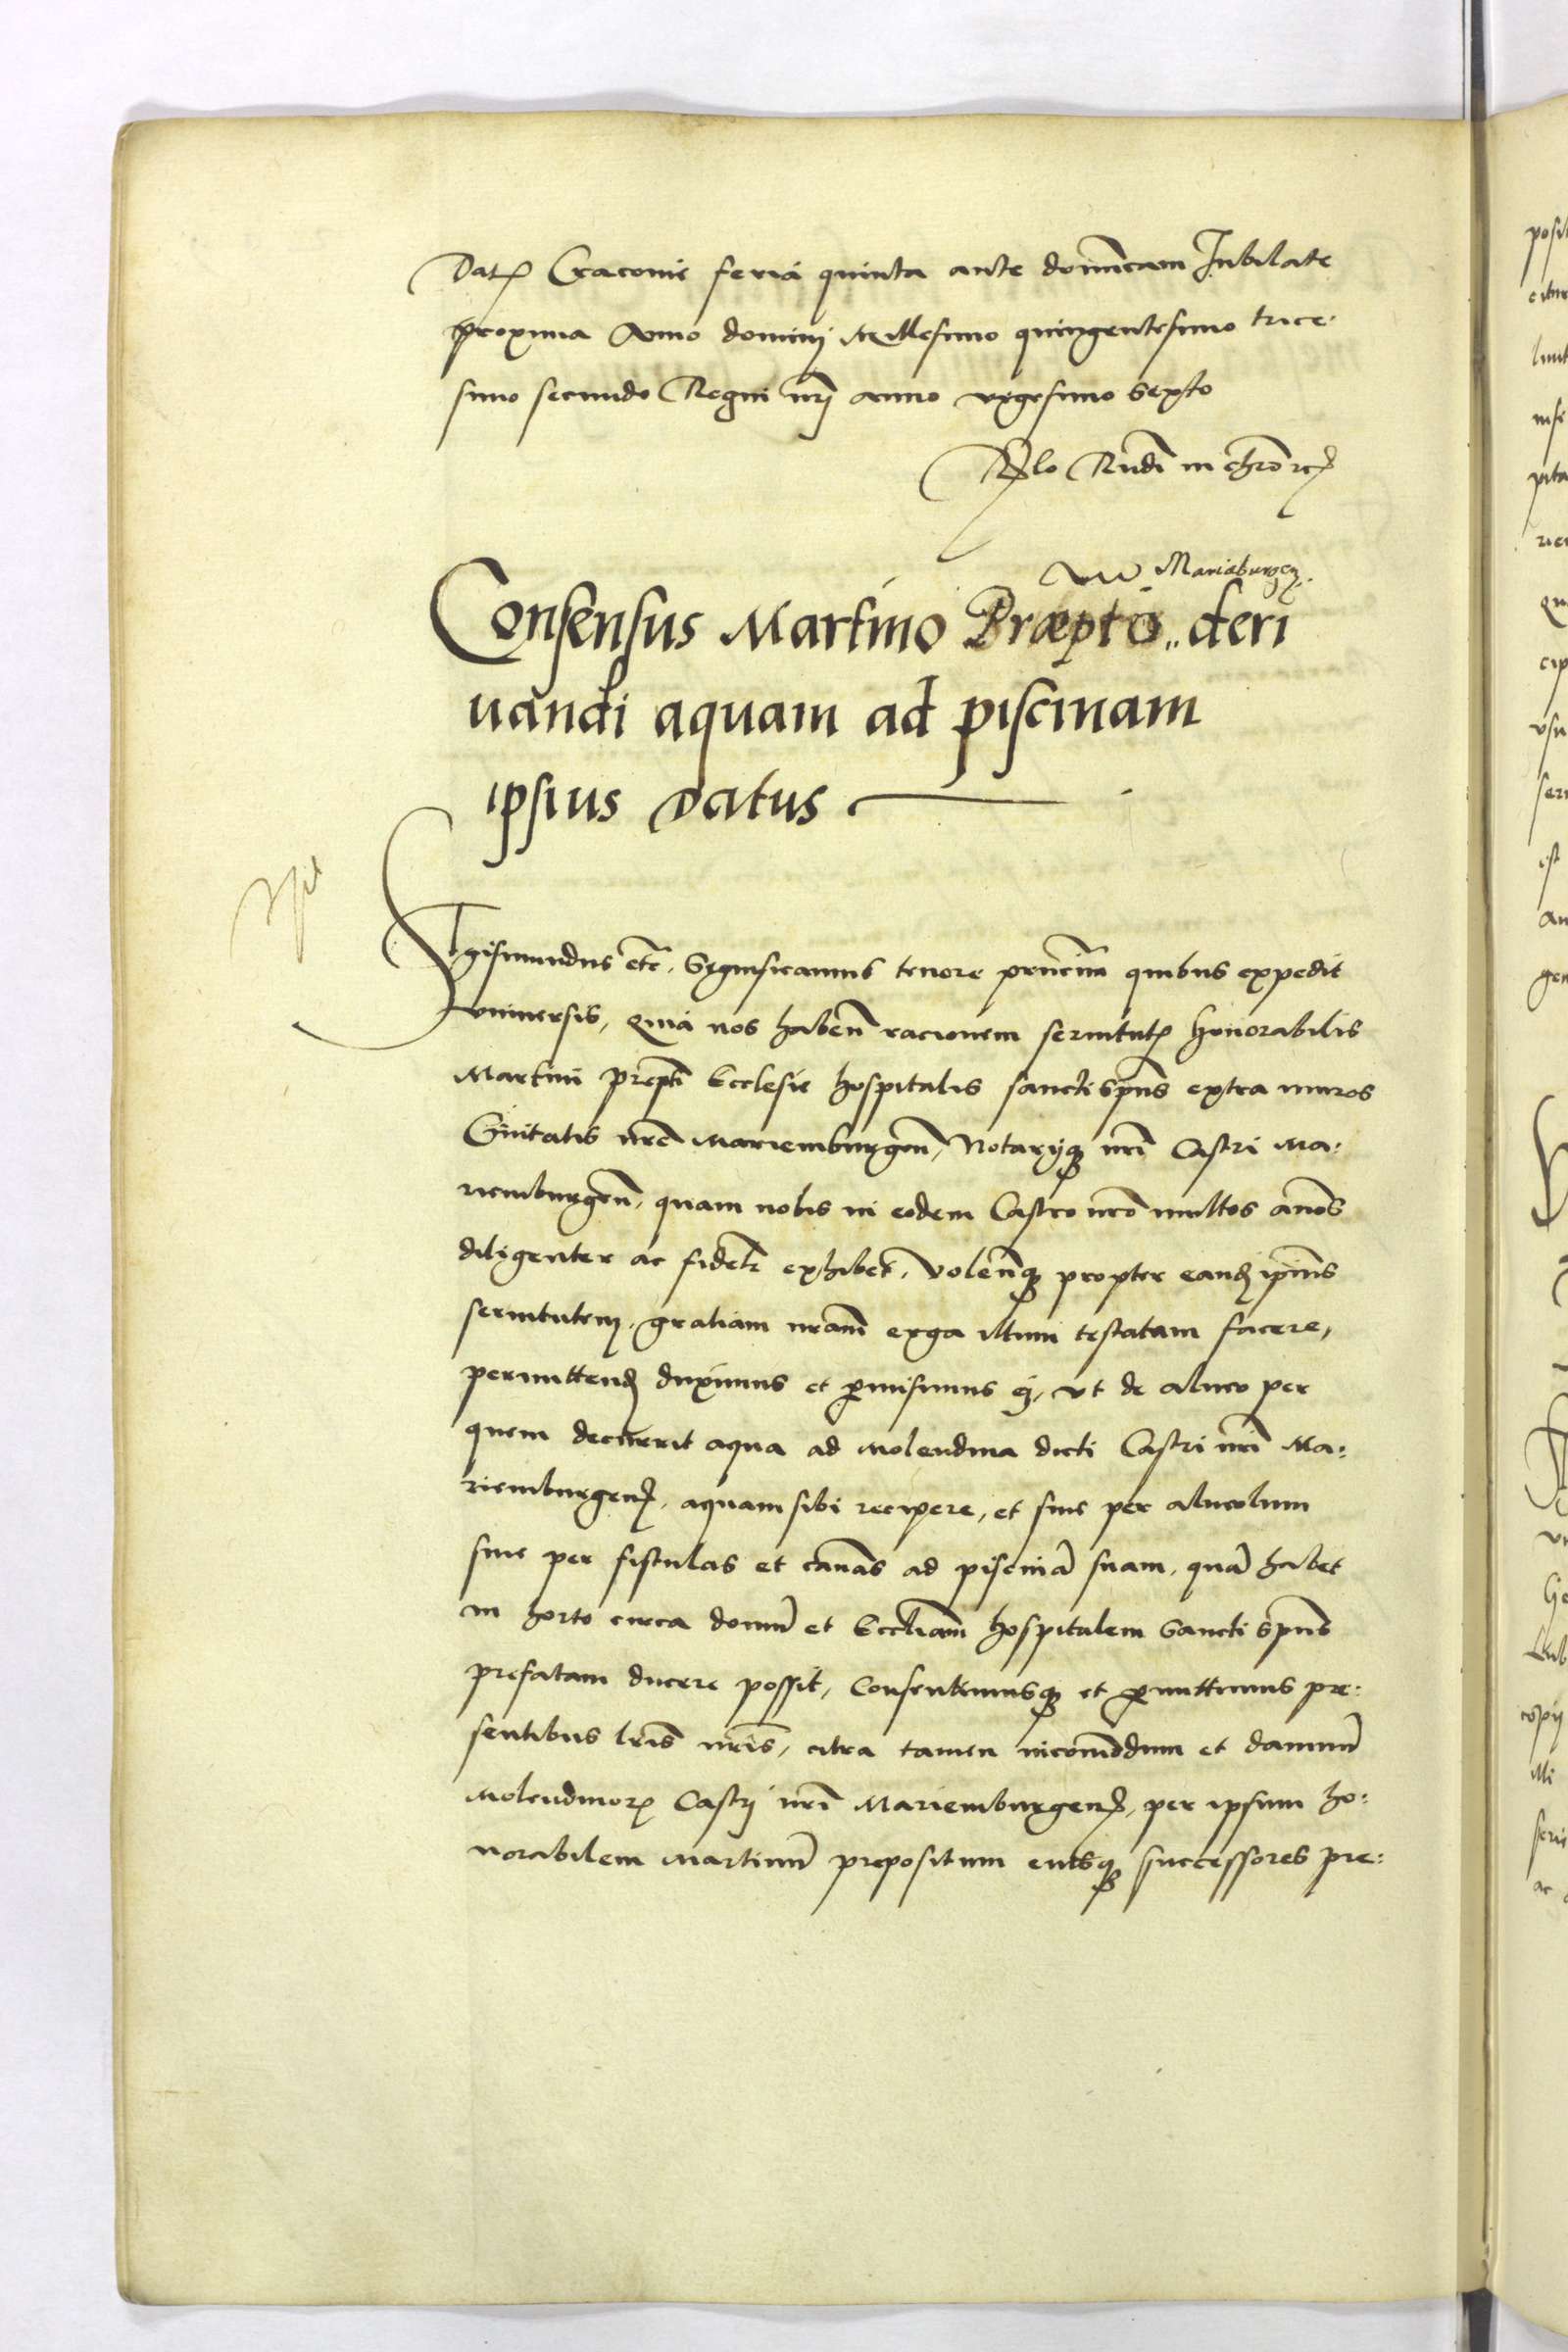 Datū Cracovie feria quinta ante dominicam Jubilate
proxima Anno dominij Millesimo quingentesimo trice
simo secundo Regni nrī anno vigesimo sexto
Rūdi in chronicē
Mariaeburgen.
Consensus Martino Præpto deri
uandi aquam ad piscinam
ipsius Datus
Sigismundus etc. Significamus tenore prñcium quibus expedit
vniuersis, Quia nos habeñ racionem seruitutū honorabilis
Martini prepti Ecclesie hospitalis sancti spūs extra muros
Ciuitatis nrē Mariemburgeñ, Notarijq̃ nrī Castri Ma:
riemburgeñ, quam nobis in eodem Castro nrō multos annōs
diligenter ac fidelr exhibet, Volenq̃ propter eand ipsius
seruitutem, gratiam nrām erga illum testatam facere,
permittend duximus et pmisimus ei, vt de alueo per
quem decurrit aqua ad Molendina dicti Castri nrī Ma:
riemburgeñ, aquam sibi recipere, et siue per alueolum
siue per fistulas et cannas ad piscinā suam, quā habet
in horto circa domū et Eccliam hospitalem Sancti Spūs
prefatam ducere possit, Consentimusq̃ et pmittimus pre:
sentibus lrīs nrīs, citra tamen incommodum et damnū
Molendinorū Castrj nrī Mariemburgeñ, per ipsum ho:
norabilem Martinū prepositum eiusq̃ successores pre: